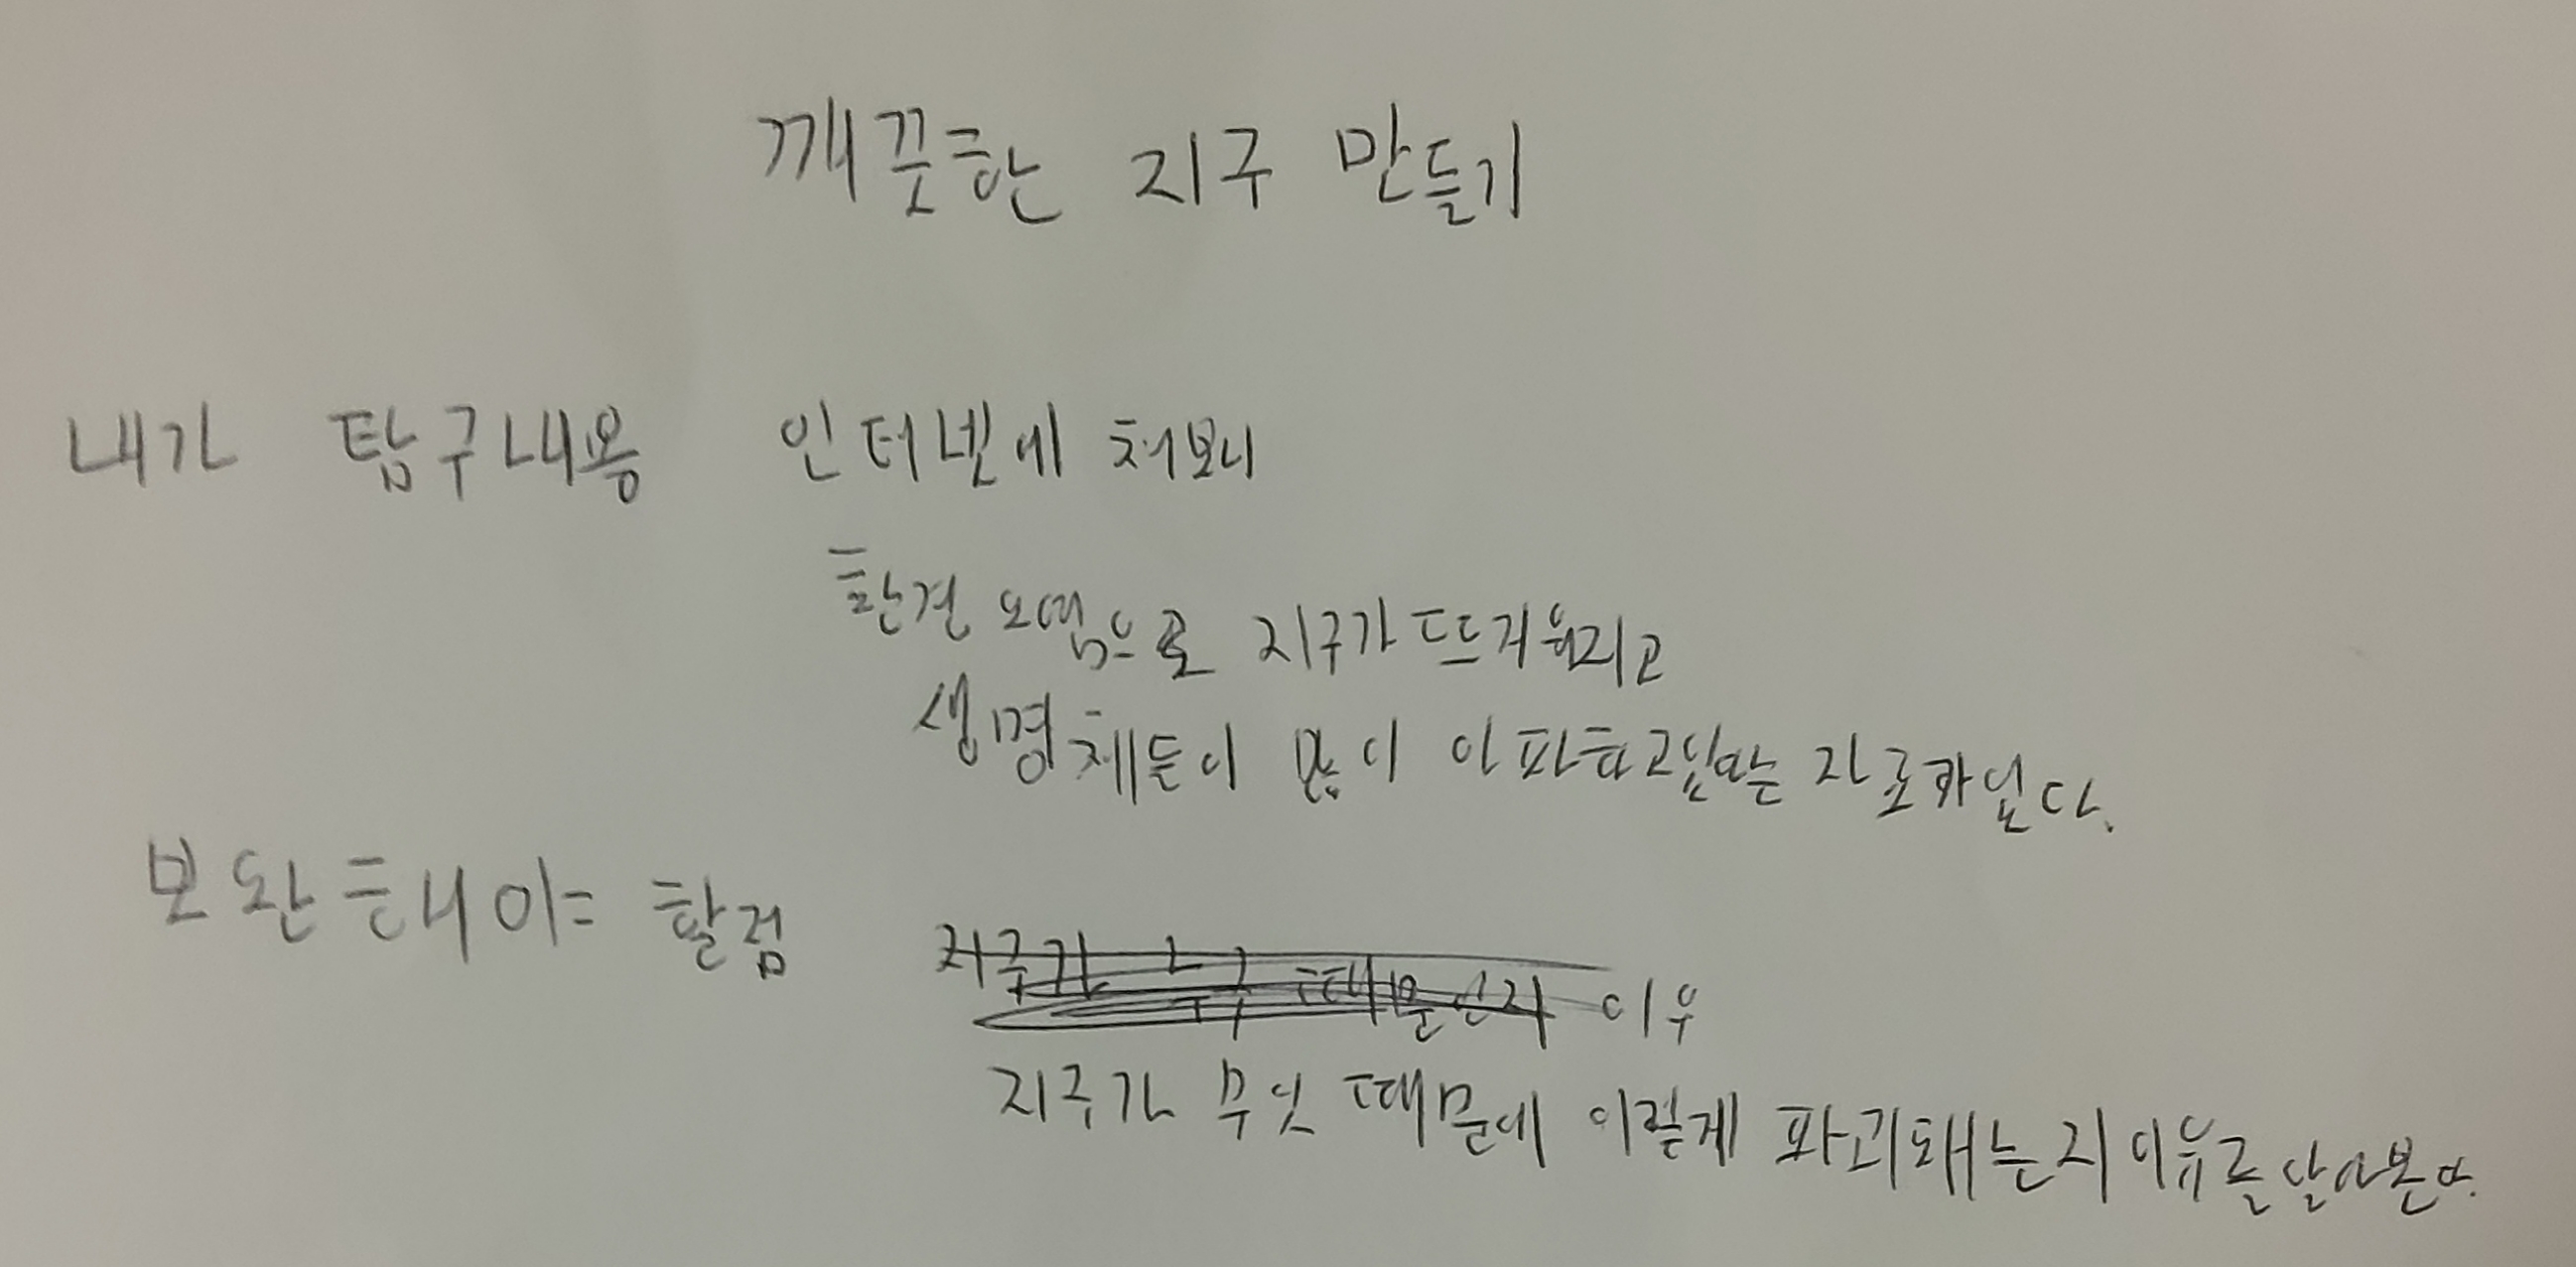 깨끗한 지구 만들기
내가 탐구내용 인터넷에 처보니
환경 오염으로 지구가 뜨거워지고
생명체들이 많이 아파하고있다는 자료가있다.
보완해야 할점
이유
지구가 무엇 때문에 이렇게 파괴돼는지 이유를 알아본다.